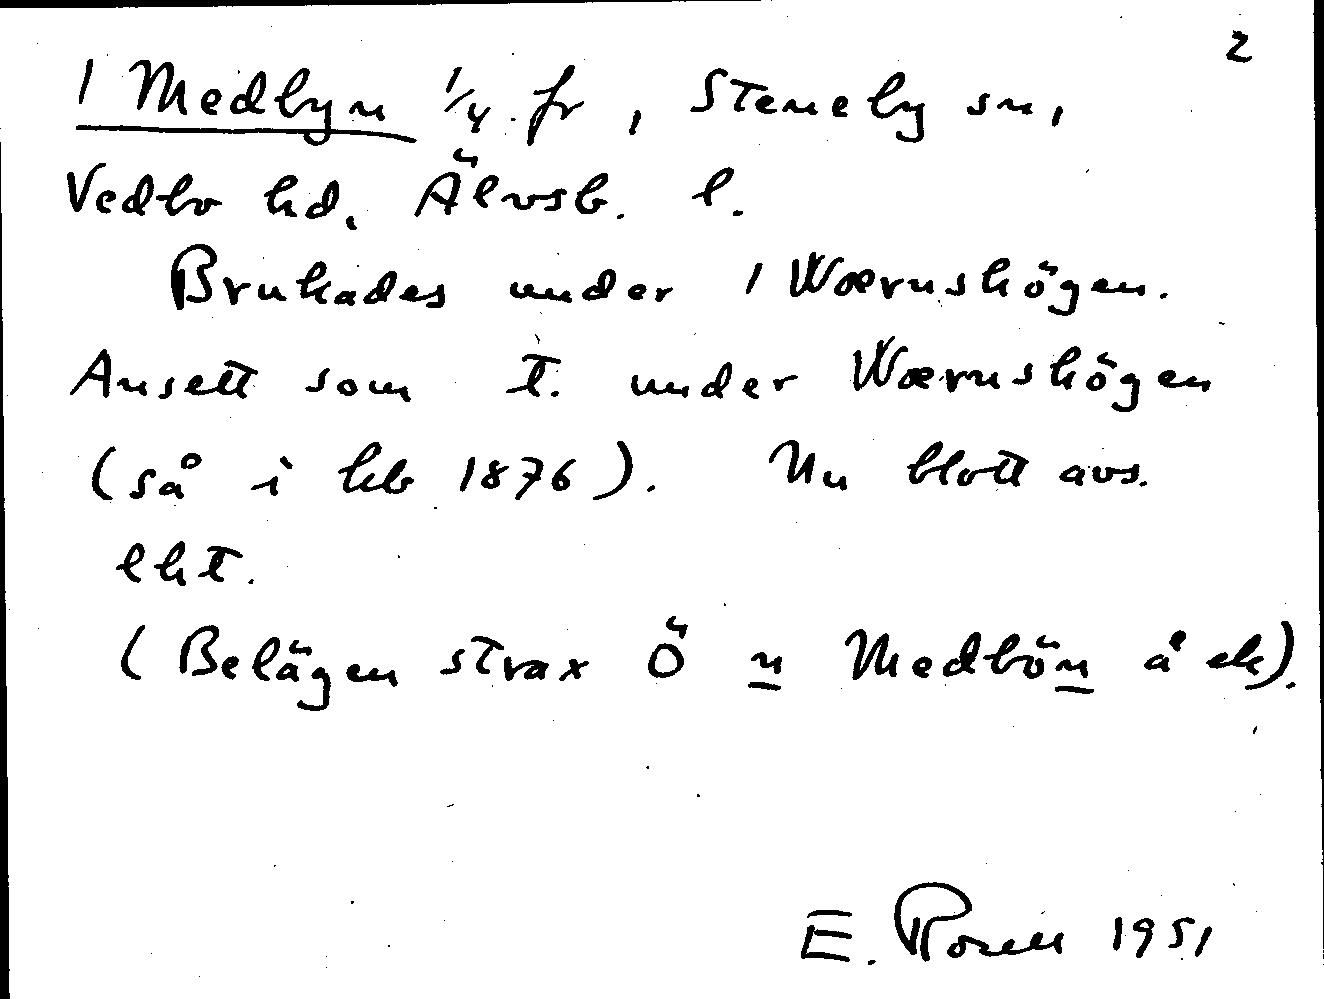 2
1 Medbyn 1/4 fr, Steneby sn,
Vedbo hd. Älvsb. l.
Brukades under 1 Wærnshögen.
Ansett som t. under Wærnshögen
(så i kb 1876). Nu blott avs.
lht.
(Belägen strax Ö n Medbön å ek).
E. Rosell 1951